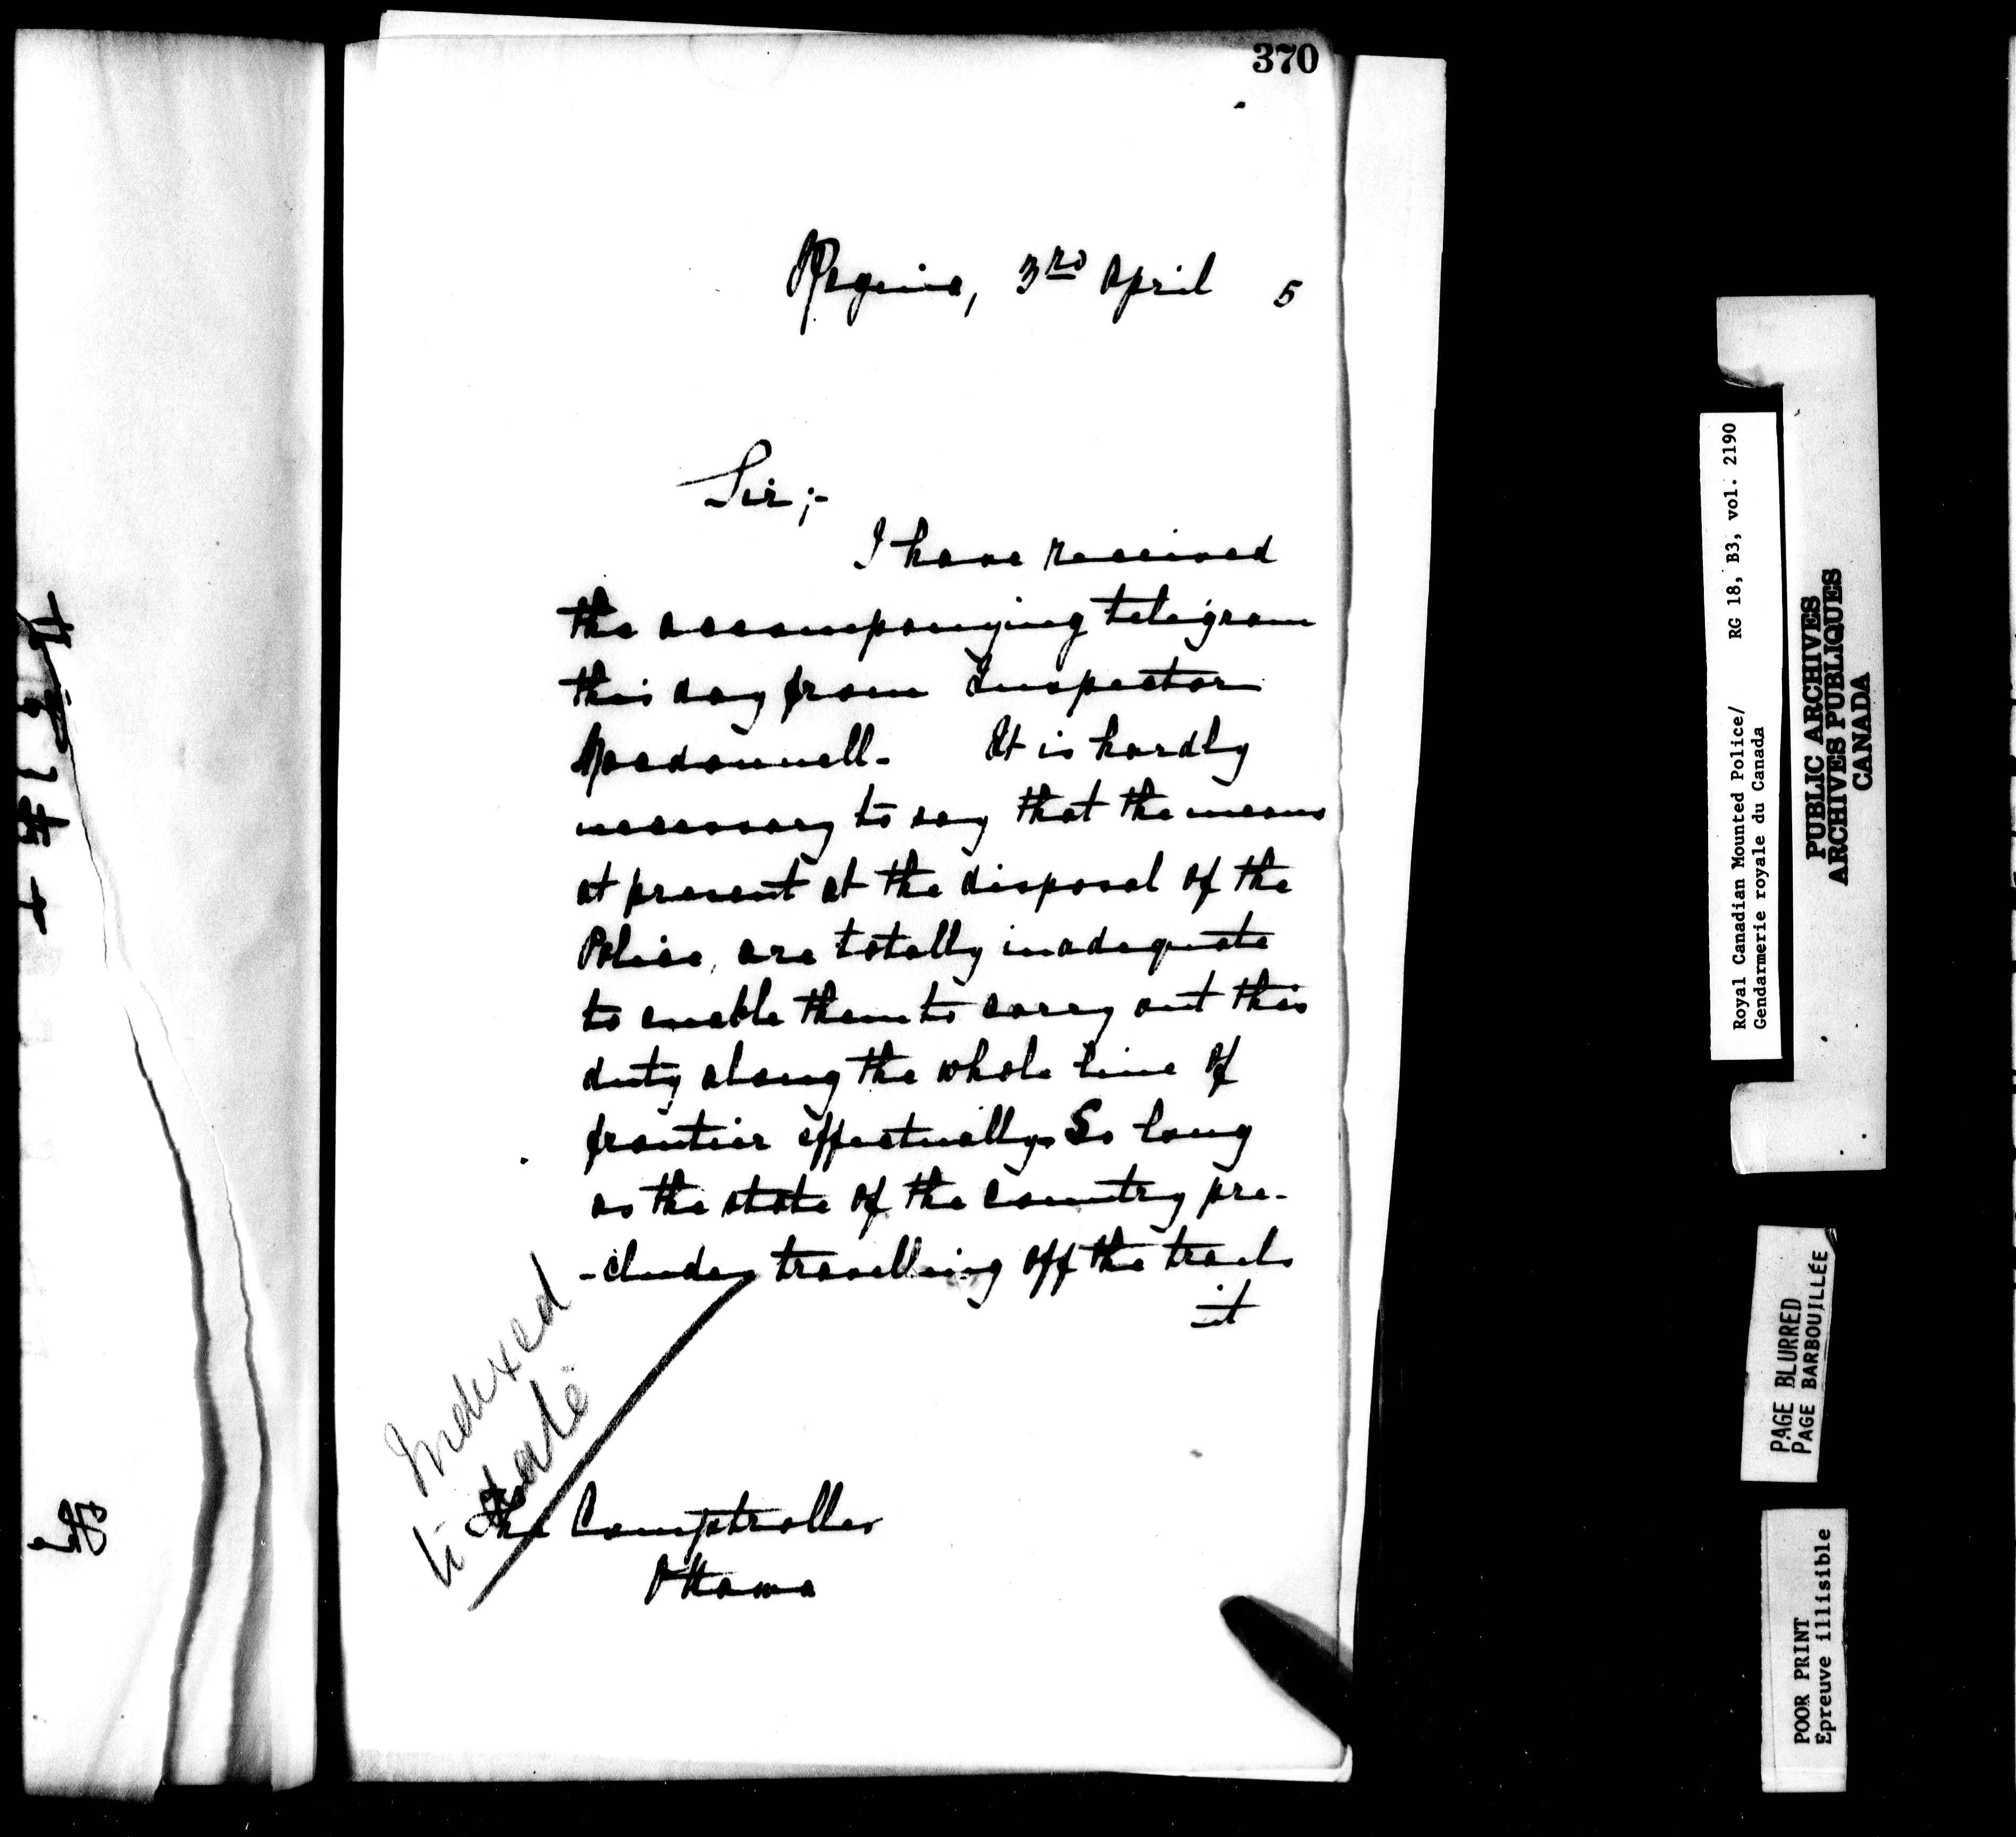 370
Regina, 3rd April 5
Sir;-
I have received
the accompanying telegram
this day from Inspector
Macdonnell. It is hardly
necessary to say that the means
at present at the disposal of the
Police, are totally inadequate
to enable them to carry out this
duty along the whole line of
frontier effectually. So long
as the state of the country pre-
-cludes travelling off the trails
it
Indexed
to
The Comptroller
Ottawa
Royal Canadian Mounted Police/ RG 18, B3, vol. 2190
Gendarmerie royale du Canada
PUBLIC ARCHIVES
ARCHIVES PUBLIQUES
CANADA
PAGE BLURRED
PAGE BARBOUILLÉE
POOR PRINT
Épreuve illisible